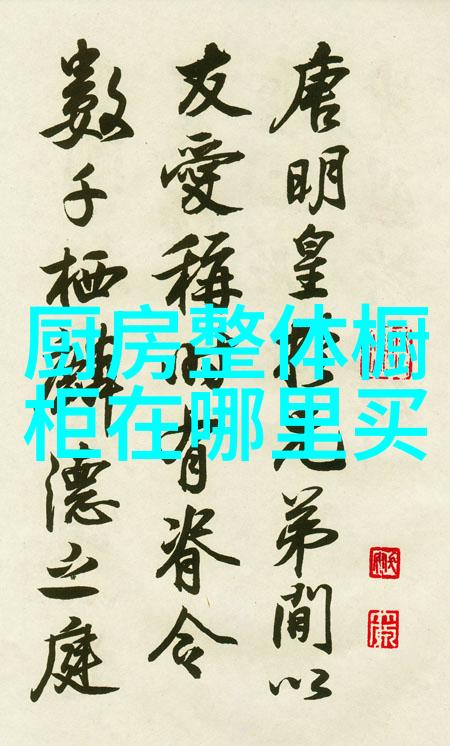 厨房整体橱
柜在哪里买
唐明皇於兄弟間以
友愛稱時有脊令
數千栖麟德之庭